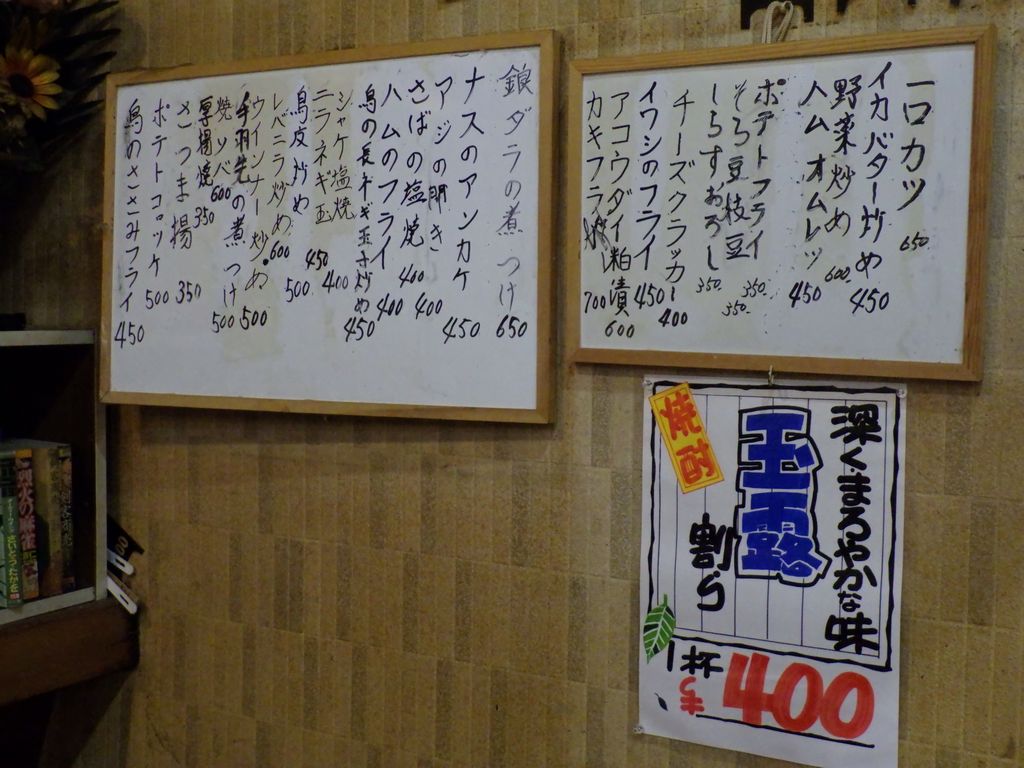 一口カツ 650
イカバター炒め 450
野菜炒め 600
ハムオムレツ 450
ポテトフライ 350
そら豆枝豆 350
しらすおろし 350
チーズクラッカー 400
イワシのフライ 450
アコウダイ粕漬 600
カキフライ 700
銀ダラの煮つけ 650
ナスのアンカケ 450
アジの開き 400
さばの塩焼 400
ハムのフライ 400
鳥の長ネギ玉子炒め 450
シャケ塩焼 400
ニラネギ玉 450
鳥皮炒め 500
レバニラ炒め 600
ウインナー炒め 500
手羽先の煮つけ 500
焼ソバ 600
厚揚焼 350
さつま揚 350
ポテトコロッケ 500
鳥のささみフライ 450
深く、まろやかな味
玉露
割り
焼酎
1杯
400
烈火の麻雀
さいとうたかを